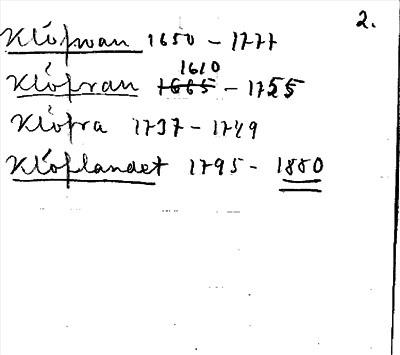 2.
Klófvan 1650 - 1777
1610
Klófvan 1665 - 1755
Klófra 1737 - 1749
Klóflandet 1795 - 1880